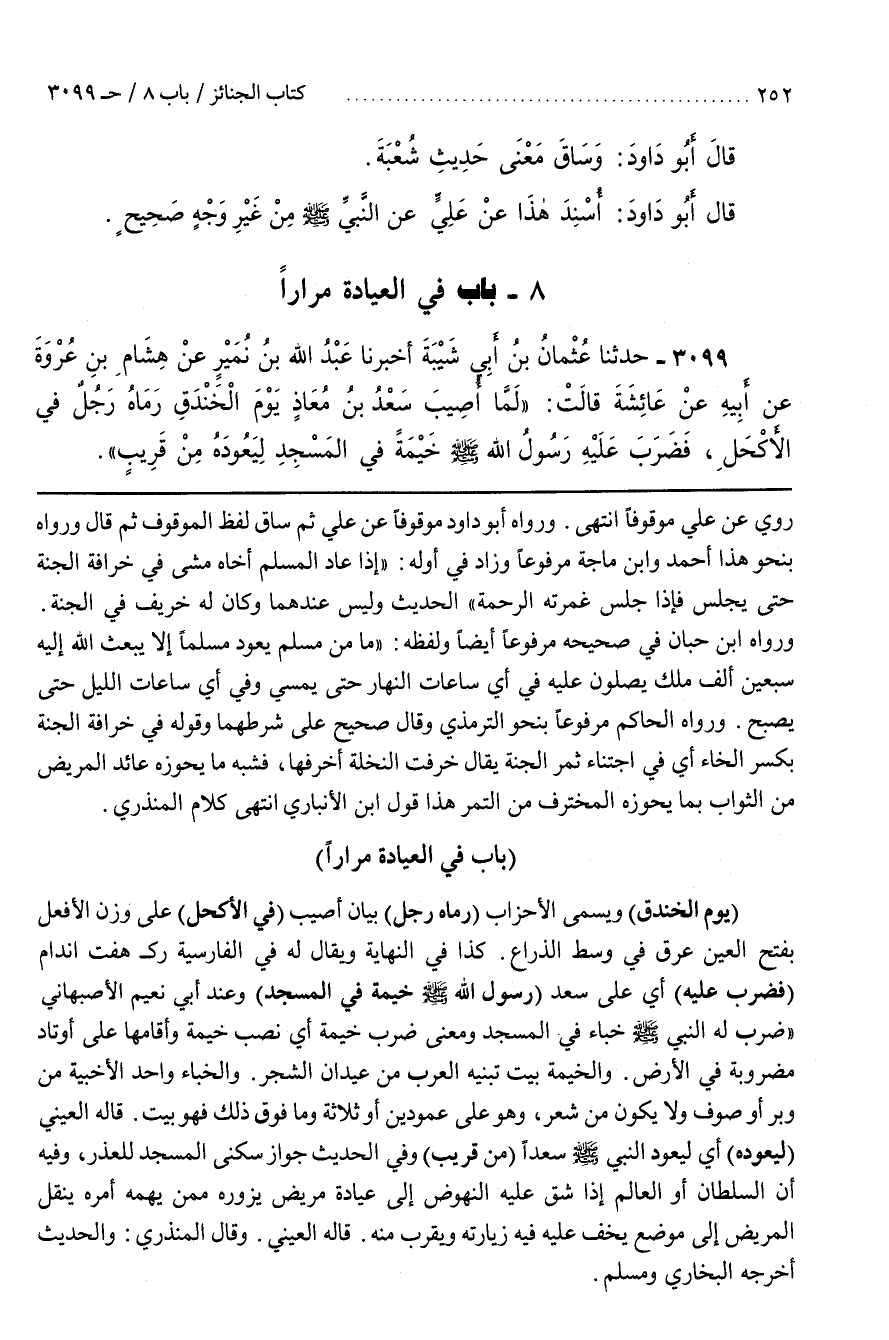 ٢٥٢ ........................................ كتاب الجنائز / باب ٨ / حـ ٣٠٩٩
قالَ أَبُو دَاودَ: وَسَاقَ مَعْنَى حَدِيثِ شُعْبَةَ.
قال أَبُو دَاودَ: أُسْنِدَ هٰذَا عنْ عَلِيٍّ عن النَّبيِّ ﷺ مِنْ غَيْرِ وَجْهٍ صَحِيحٍ.
٨ ـ باب في العيادة مراراً
٣٠٩٩ ـ حدثنا عُثْمانُ بنُ أَبِي شَيْبَةَ أخبرنا عَبْدُ الله بنُ نُمَيْرٍ عنْ هِشَامِ بنِ عُرْوَةَ
عن أَبِيهِ عنْ عَائِشَةَ قالَتْ: «لَمَّا أُصِيبَ سَعْدُ بنُ مُعَاذٍ يَوْمَ الْخَنْدَقِ رَمَاهُ رَجُلٌ في
الأَكْحَلِ، فَضَرَبَ عَلَيْهِ رَسُولُ الله ﷺ خَيْمَةً في المَسْجِدِ لِيَعُودَهُ مِنْ قَرِيبٍ».
روي عن علي موقوفاً انتهى. ورواه أبو داود موقوفاً عن علي ثم ساق لفظ الموقوف ثم قال ورواه
بنحو هذا أحمد وابن ماجة مرفوعاً وزاد في أوله: «إذا عاد المسلم أخاه مشى في خرافة الجنة
حتى يجلس فإذا جلس غمرته الرحمة» الحديث وليس عندهما وكان له خريف في الجنة.
ورواه ابن حبان في صحيحه مرفوعاً أيضاً ولفظه: «ما من مسلم يعود مسلماً إلا يبعث الله إليه
سبعين ألف ملك يصلون عليه في أي ساعات النهار حتى يمسي وفي أي ساعات الليل حتى
يصبح. ورواه الحاكم مرفوعاً بنحو الترمذي وقال صحيح على شرطهما وقوله في خرافة الجنة
بكسر الخاء أي في اجتناء ثمر الجنة يقال خرفت النخلة أخرفها، فشبه ما يحوزه عائد المريض
من الثواب بما يحوزه المخترف من التمر هذا قول ابن الأنباري انتهى كلام المنذري.
(باب في العيادة مراراً)
(يوم الخندق) ويسمى الأحزاب (رماه رجل) بيان أصيب (في الأكحل) على وزن الأفعل
بفتح العين عرق في وسط الذراع. كذا في النهاية ويقال له في الفارسية رك هفت اندام
(فضرب عليه) أي على سعد (رسول الله ﷺ خيمة في المسجد) وعند أبي نعيم الأصبهاني
«ضرب له النبي ﷺ خباء في المسجد ومعنى ضرب خيمة أي نصب خيمة وأقامها على أوتاد
مضروبة في الأرض. والخيمة بيت تبنيه العرب من عيدان الشجر. والخباء واحد الأخبية من
وبر أو صوف ولا يكون من شعر، وهو على عمودين أو ثلاثة وما فوق ذلك فهو بيت. قاله العيني
(ليعوده) أي ليعود النبي ﷺ سعداً (من قريب) وفي الحديث جواز سكنى المسجد للعذر، وفيه
أن السلطان أو العالم إذا شق عليه النهوض إلى عيادة مريض يزوره ممن يهمه أمره ينقل
المريض إلى موضع يخف عليه فيه زيارته ويقرب منه. قاله العيني. وقال المنذري: والحديث
أخرجه البخاري ومسلم.